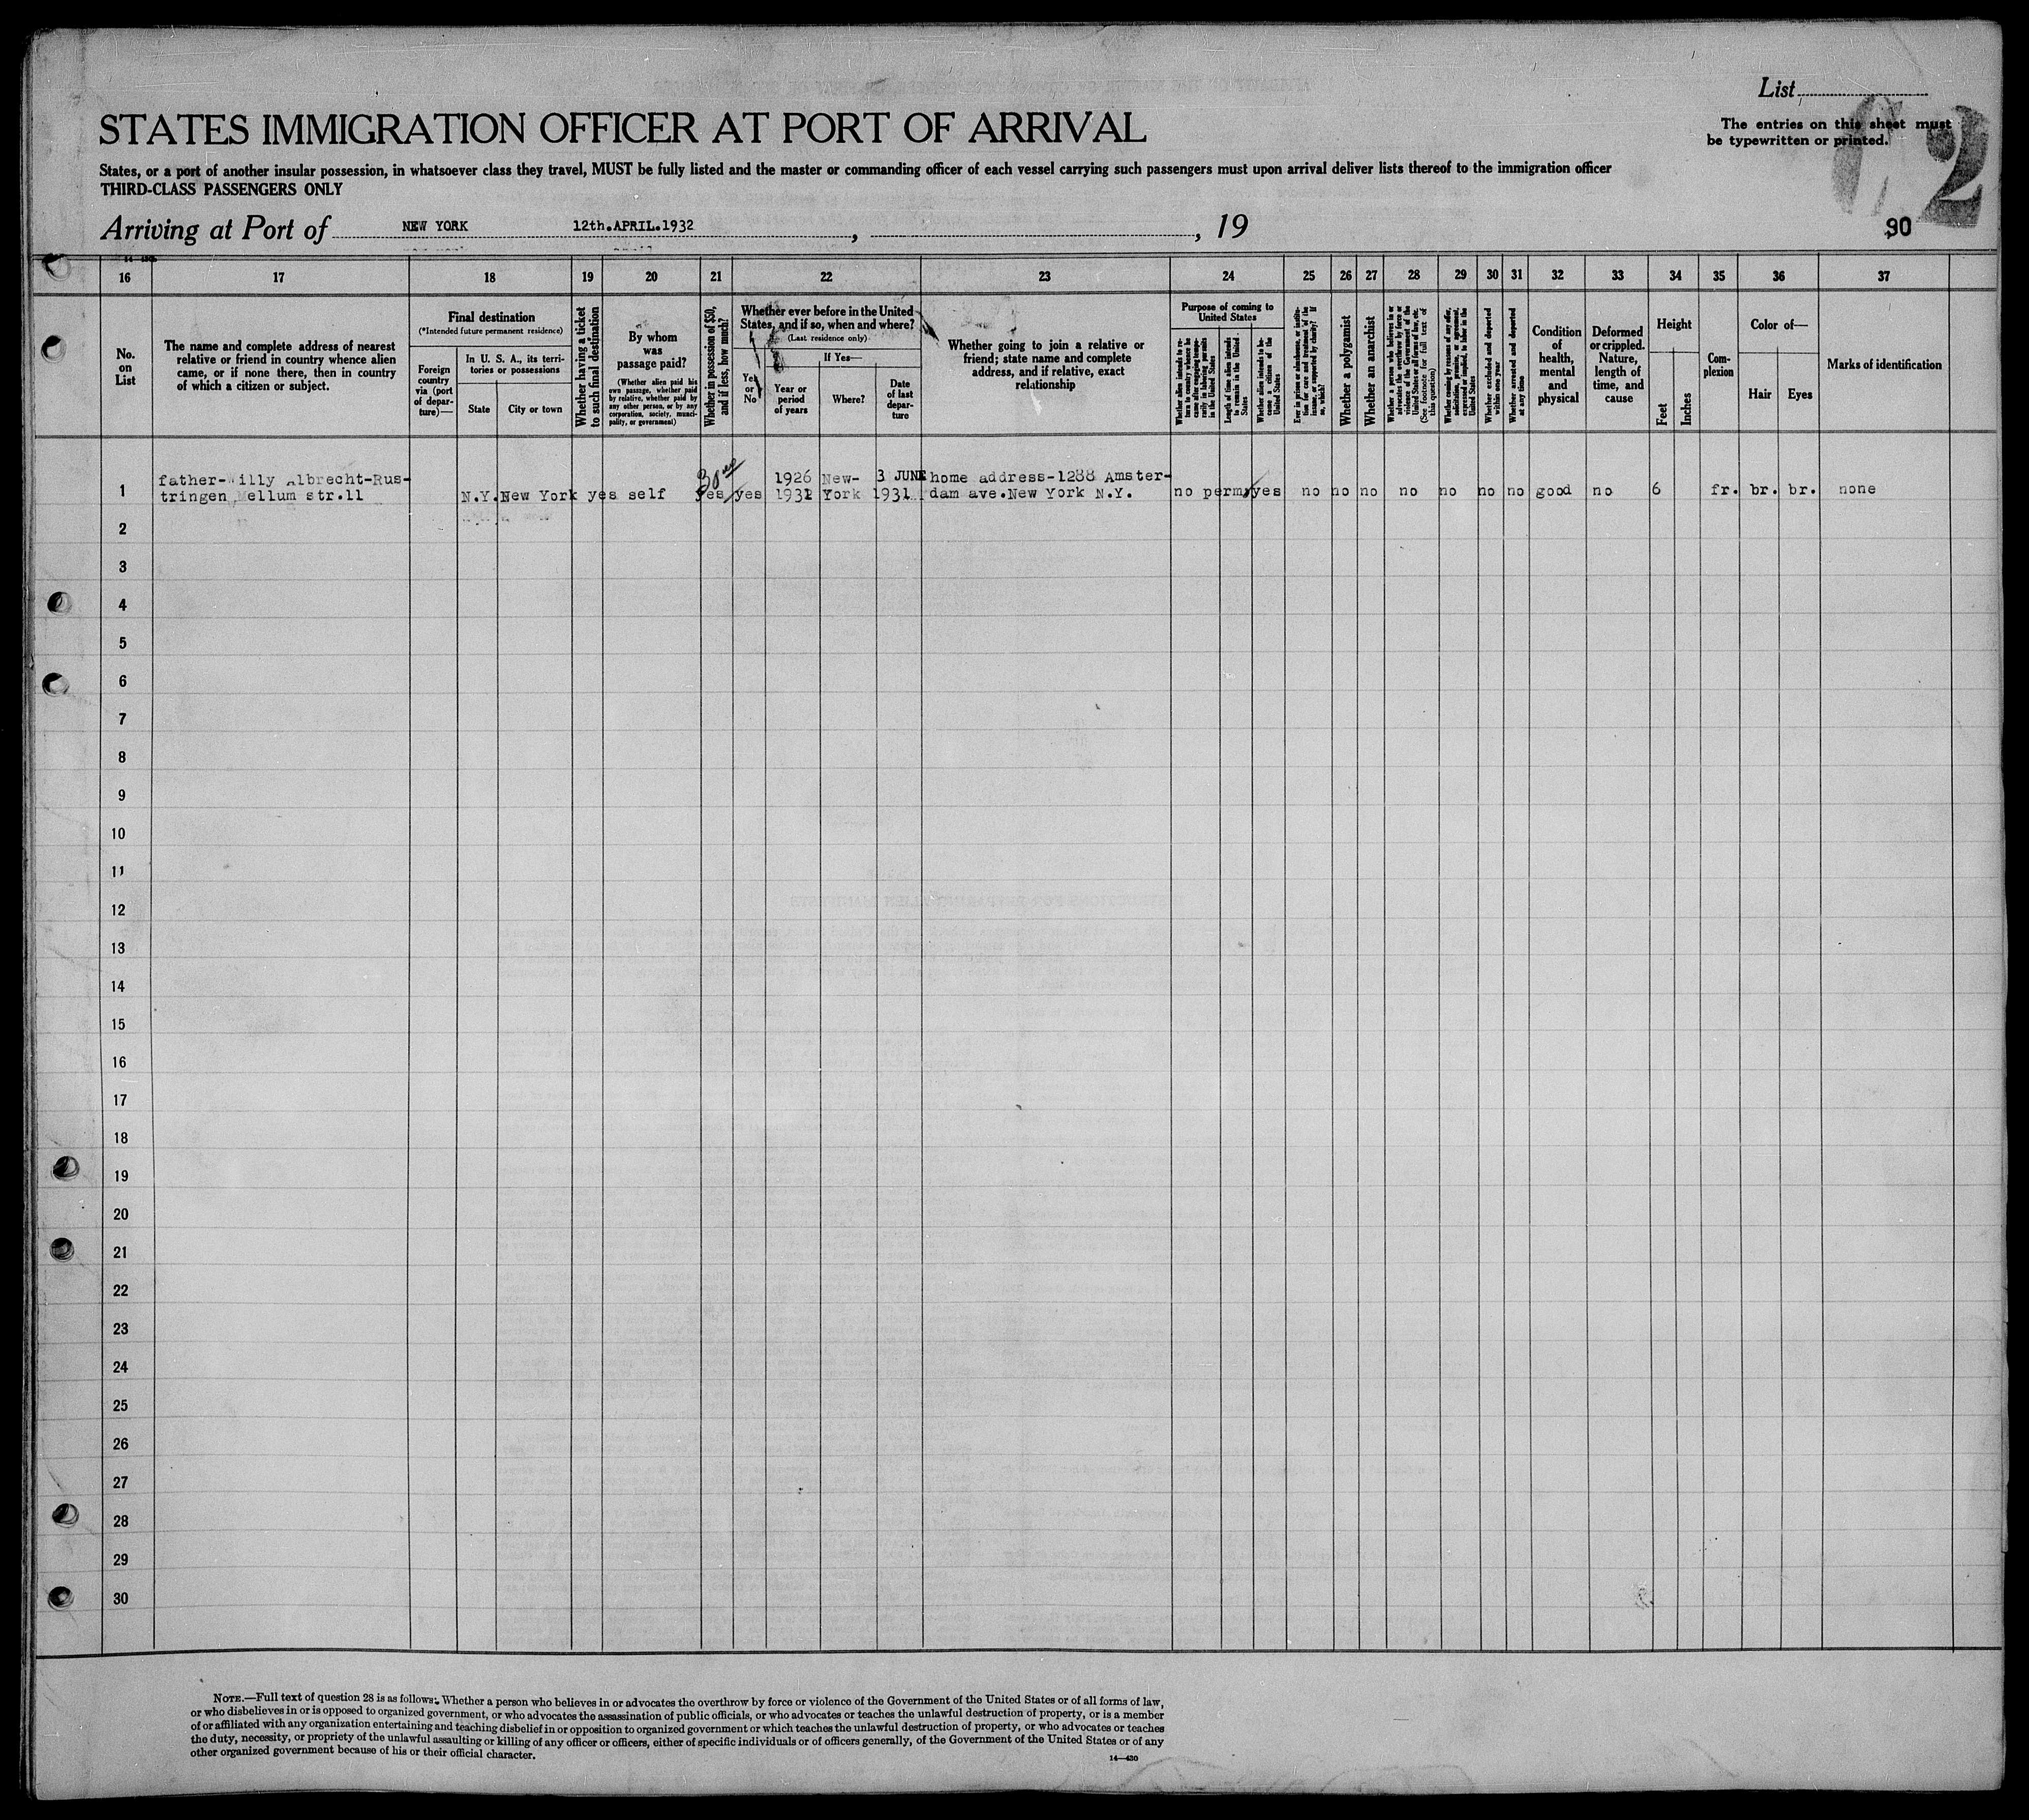 List
STATES IMMIGRATION OFFICER AT PORT OF ARRIVAL
The entries on this sheet must
be typewritten or printed.
2
States, or a port of another insular possession, in whatsoever class they travel, MUST be fully listed and the master or commanding officer of each vessel carrying such passengers must upon arrival deliver lists thereof to the immigration officer
THIRD-CLASS PASSENGERS ONLY
Arriving at Port of NEW YORK 12th.APRIL.1932, , 19
90
16 17 18 19 20 21 22 23 24 25 26 27 28 29 30 31 32 33 34 35 36 37
No.
on
List
The name and complete address of nearest
relative or friend in country whence alien
came, or if none there, then in country
of which a citizen or subject.
Final destination
(*Intended future permanent residence)
Foreign
country
via (port
of depar-
ture)—
In U. S. A., its terri-
tories or possessions
State
City or town
Whether having a ticket
to such final destination
By whom
was
passage paid?
(Whether alien paid his
own passage, whether paid
by relative, whether paid by
any other person, or by any
corporation, society, munici-
pality, or government)
Whether in possession of $50,
and if less, how much?
Whether ever before in the United
States, and if so, when and where?
(Last residence only)
Yes
or
No
If Yes—
Year or
period
of years
Where?
Date
of last
depar-
ture
Whether going to join a relative or
friend; state name and complete
address, and if relative, exact
relationship
Purpose of coming to
United States
Whether alien intends to re-
turn to country whence he
came after engaging tempo-
rarily in laboring pursuits
in the United States
Length of time alien intends
to remain in the United
States
Whether alien intends to be-
come a citizen of the
United States
Ever in prison or almshouse, or institu-
tion for care and treatment of the
insane, or supported by charity? If
so, which?
Whether a polygamist
Whether an anarchist
Whether a person who believes in or
advocates the overthrow by force or
violence of the Government of the
United States or all forms of law, etc.
(See footnote for full text of
this question)
Whether coming by reasons of any offer,
solicitation, promise, or agreement,
expressed or implied, to labor in the
United States
Whether excluded and deported
within one year
Whether arrested and deported
at any time
Condition
of
health,
mental
and
physical
Deformed
or crippled.
Nature,
length of
time, and
cause
Height
Feet
Inches
Com-
plexion
Color of—
Hair
Eyes
Marks of identification
father- illy Albrecht-Rus- 30 1926 New- 3 JUNE home address-1288 Amster-
1 tringen Mellum str.11 N.Y. New York yes self yes yes 1931 York 1931 dam ave.New York N.Y. no perm. yes no no no no no no no good no 6 fr. br. br. none
2
3
4
5
6
7
8
9
10
11
12
13
14
15
16
17
18
19
20
21
22
23
24
25
26
27
28
29
30
NOTE.—Full text of question 28 is as follows: Whether a person who believes in or advocates the overthrow by force or violence of the Government of the United States or of all forms of law,
or who disbelieves in or is opposed to organized government, or who advocates the assassination of public officials, or who advocates or teaches the unlawful destruction of property, or is a member
of or affiliated with any organization entertaining and teaching disbelief in or opposition to organized government or which teaches the unlawful destruction of property, or who advocates or teaches
the duty, necessity, or propriety of the unlawful assaulting or killing of any officer or officers, either of specific individuals or of officers generally, of the Government of the United States or of any
other organized government because of his or their official character.
14—430